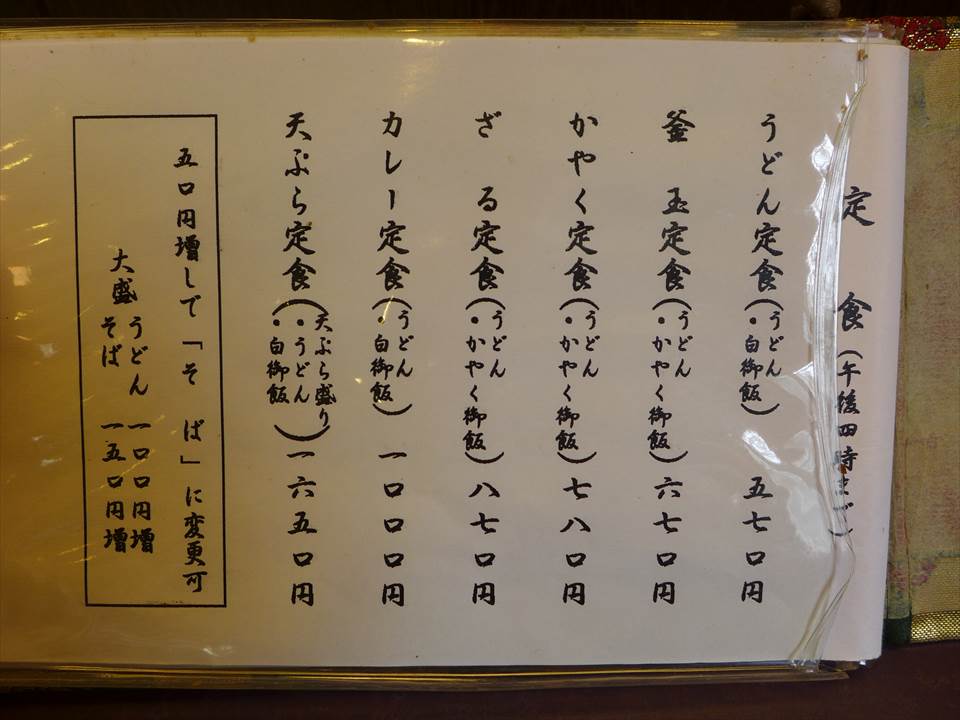 定食（午後四時まで）
うどん定食（うどん・白御飯）五七〇円
釜玉定食（うどん・かやく御飯）六七〇円
かやく定食（うどん・かやく御飯）七八〇円
ざる定食（うどん・かやく御飯）八七〇円
カレー定食（うどん・白御飯）一〇〇〇円
天ぷら定食（天ぷら盛り・うどん・白御飯）一六五〇円
五〇円増しで「そば」に変更可
大盛 うどん 一〇〇円増
そば 一五〇円増